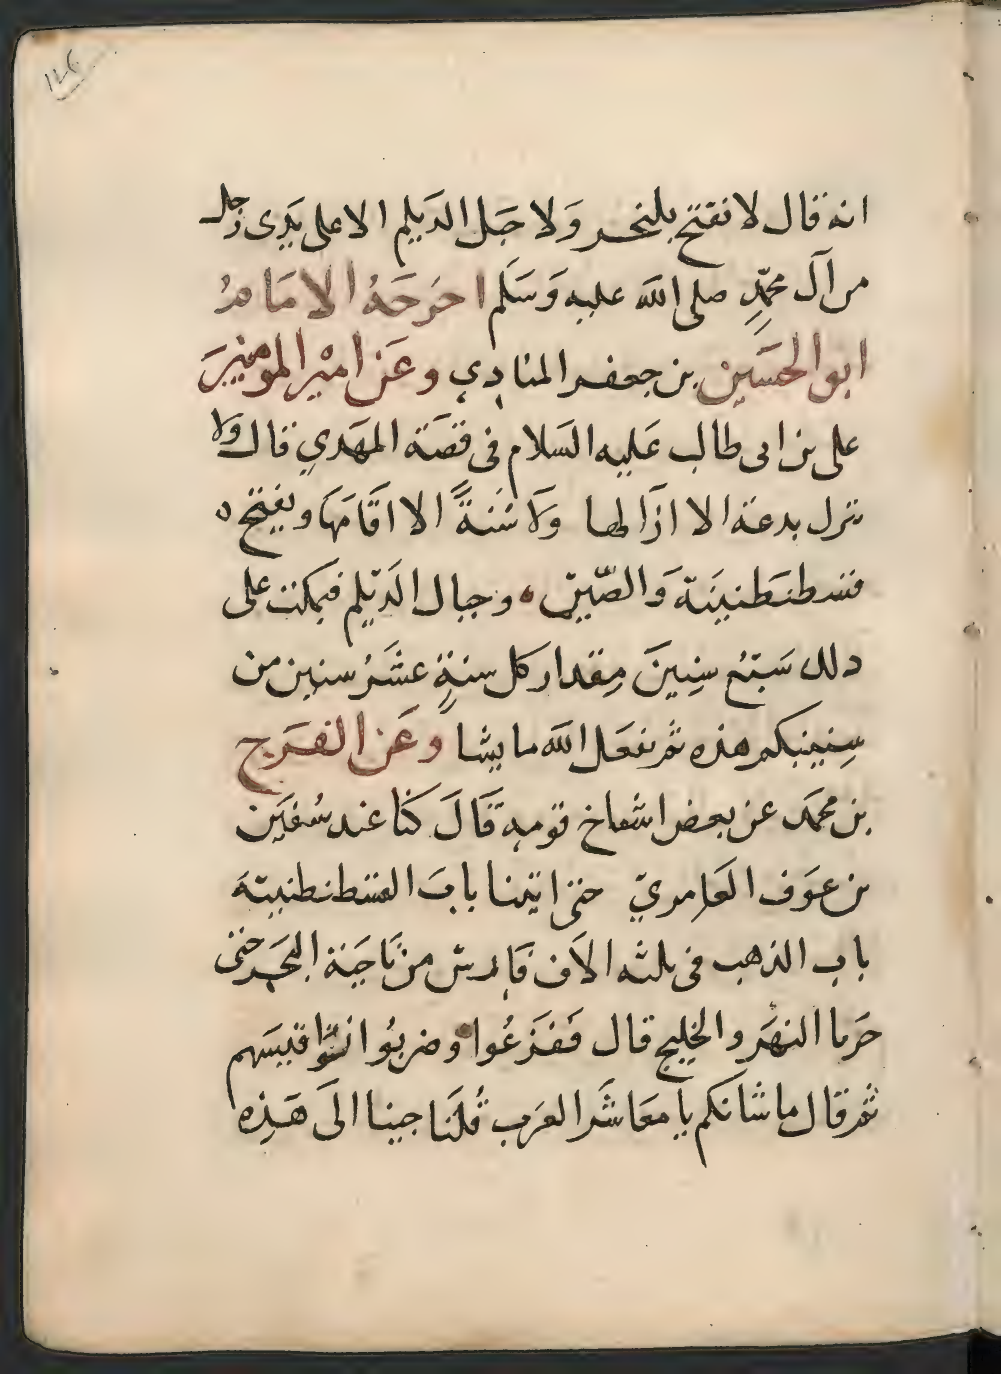 ١٤٦
انه قال لا تفتح بلنجر وَلا جَبل الدَيلم الا على يَدى رَجل
من آل محمّدٍ صلى الله عليه وَسَلم اخرَجَهُ الامَامُ
ابو الحسَين بن جعفر المنادِي وعَن امْير المومنينَ
على بن ابى طالب عَليه السَلام فى قصَة المهَدي قال ولا
تترك بدعَة الا ازَالها وَلا سُنةً الا اقَامَهَا ويفتح ه
قسطنطنينَية وَالصّين ٥ وجبال الدَيلم فيمكث على
ذلك سَبَعُ سِنِينَ مِقدار كل سنةٍ عشَرُ سنين من
سِنينكم هذه ثم يفعَل الله ما يشا وعَن الفرَج
بن محمَد عن بعض اشياخ قومه قَالَ كنا عند سُفيَن
بن عوَف العَامريّ حتى اتينا بابَ القسطنطنيية
باب الذهب فى ثلثه الاَف فَارس من نَاحيَة البحَر حتى
جَزنا النهَر والخليج قال فَفزَعُوا وضربُوا نَوَاقيسَهم
ثم قال ما شانَكم يا معَاشَر العَرب قُلنَا جينا الىَ هَذِه